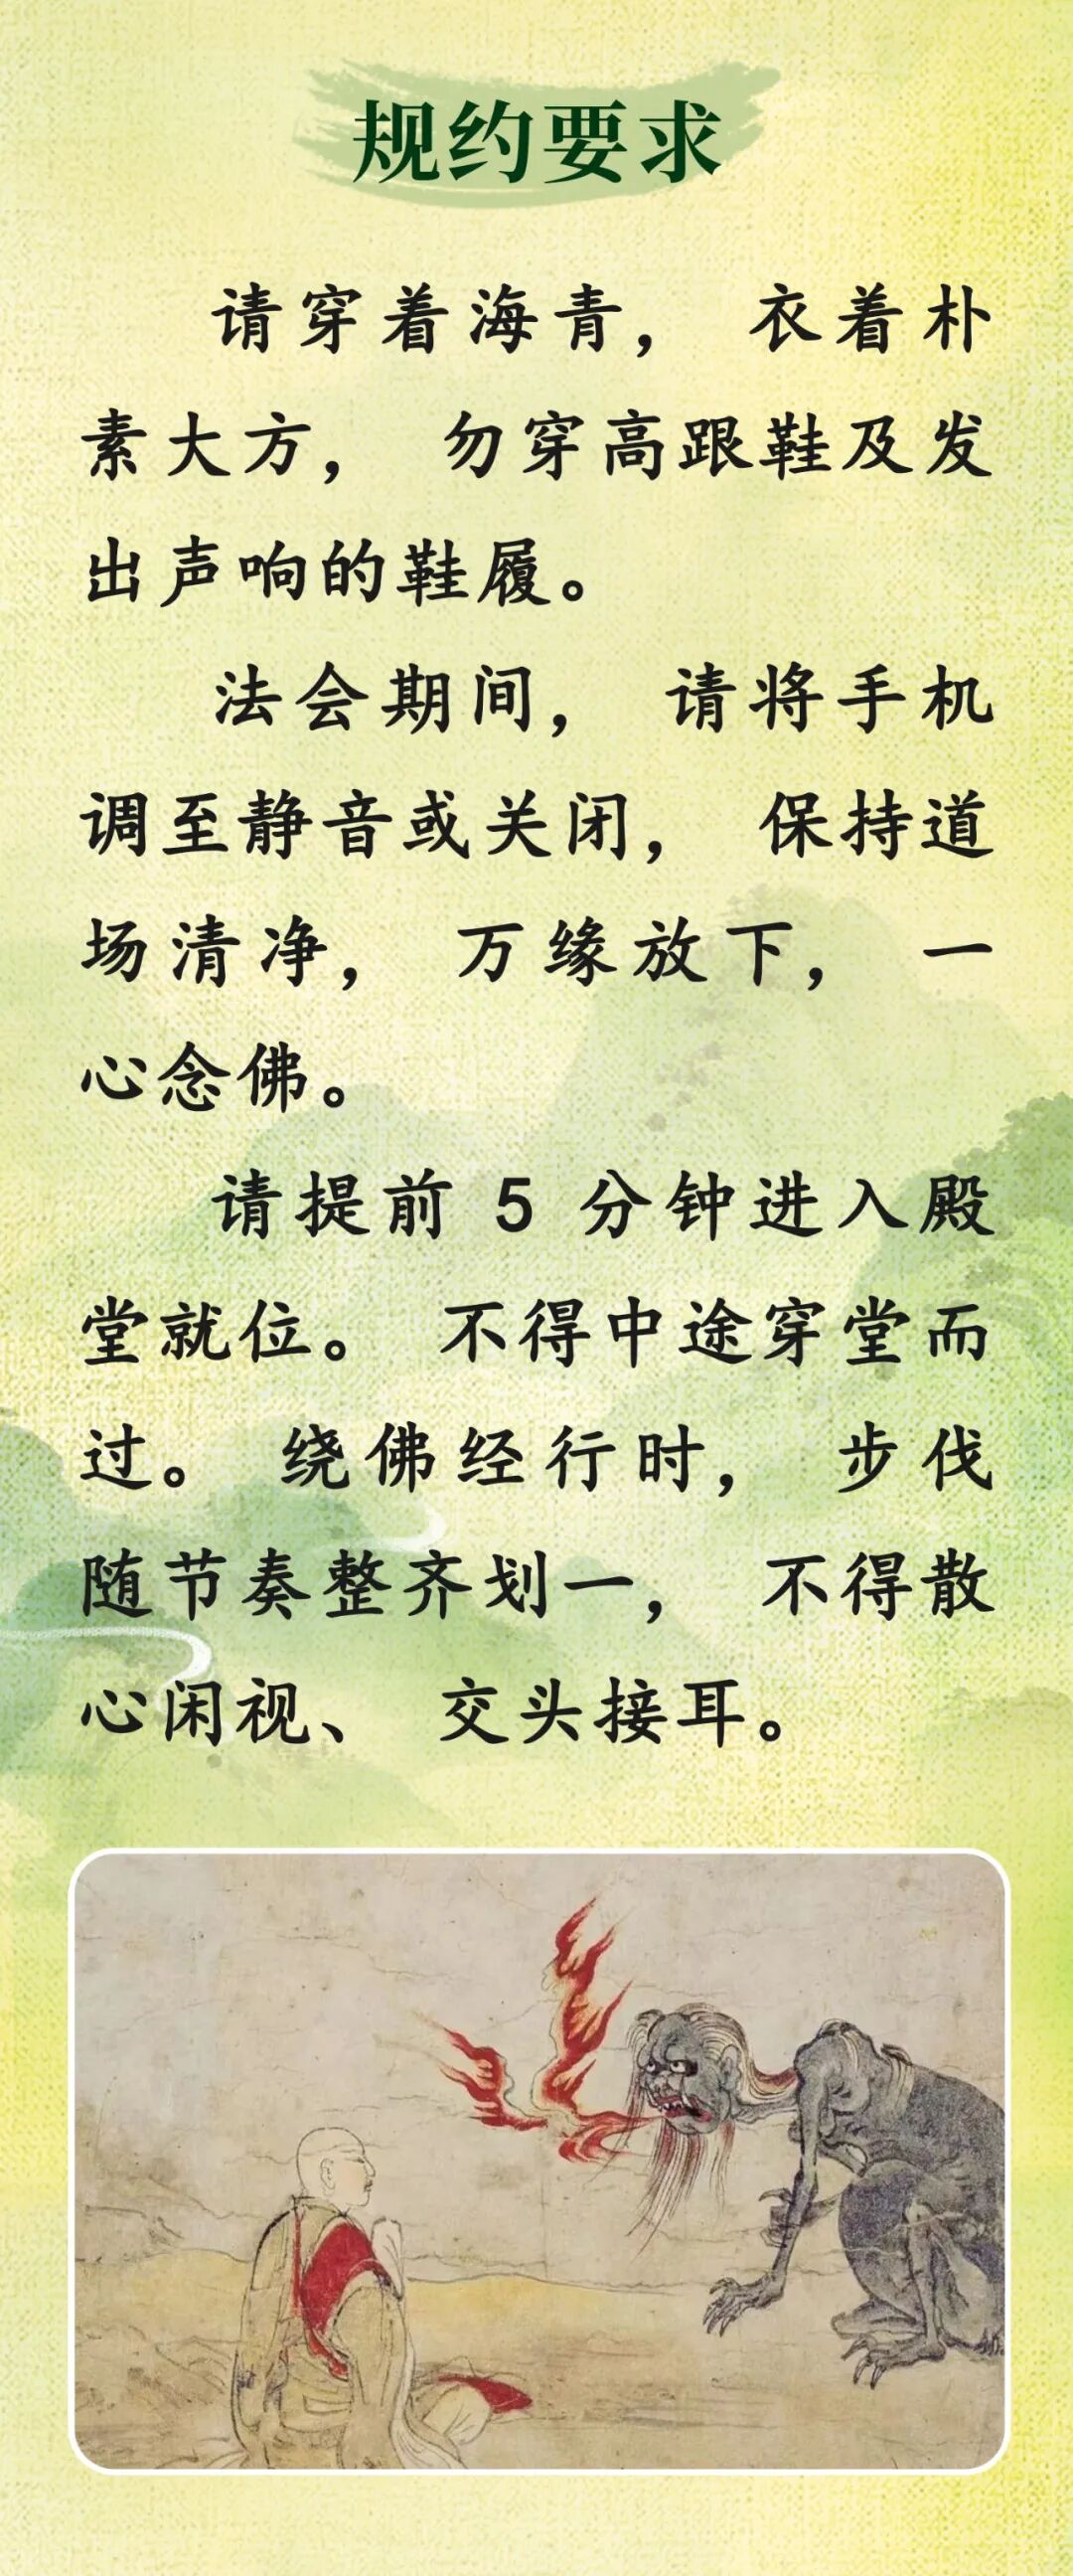 规约要求
请穿着海青，衣着朴
素大方，勿穿高跟鞋及发
出声响的鞋履。
法会期间，请将手机
调至静音或关闭，保持道
场清净，万缘放下，一
心念佛。
请提前 5 分钟进入殿
堂就位。不得中途穿堂而
过。绕佛经行时，步伐
随节奏整齐划一，不得散
心闲视、交头接耳。